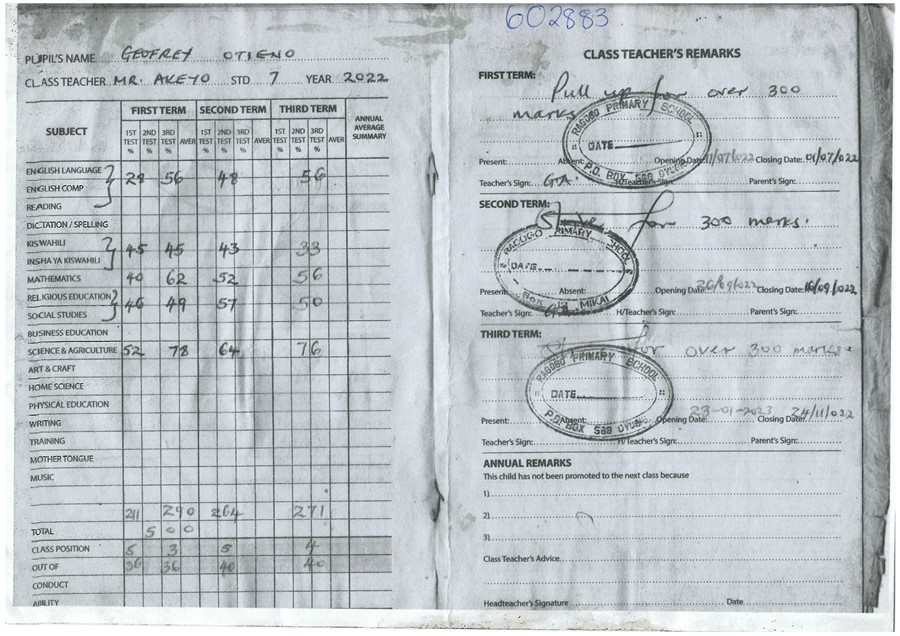 602883
PUPIL'S NAME GEOFREY OTIENO
CLASS TEACHER MR. AKEYO STD 7 YEAR 2022
SUBJECT FIRST TERM SECOND TERM THIRD TERM ANNUAL AVERAGE SUMMARY
1ST TEST % 2ND TEST % 3RD TEST % AVER 1ST TEST % 2ND TEST % 3RD TEST % AVER 1ST TEST % 2ND TEST % 3RD TEST % AVER
ENGLISH LANGUAGE 28 56 48 56
ENGLISH COMP
READING
DICTATION / SPELLING
KISWAHILI 45 45 43 33
INSHA YA KISWAHILI
MATHEMATICS 40 62 52 56
RELIGIOUS EDUCATION 46 49 57 50
SOCIAL STUDIES
BUSINESS EDUCATION
SCIENCE & AGRICULTURE 52 78 64 76
ART & CRAFT
HOME SCIENCE
PHYSICAL EDUCATION
WRITING
TRAINING
MOTHER TONGUE
MUSIC
211 290 264 271
TOTAL 500
CLASS POSITION 5 3 5 4
OUT OF 36 36 40 40
CONDUCT
ABILITY
CLASS TEACHER'S REMARKS
FIRST TERM:
Pull up for over 300
marks
RAGOGO PRIMARY SCHOOL
DATE
P.O. BOX 568
Present: Absent: Opening Date: 11/07/022 Closing Date: 01/07/022
Teacher's Sign: H/Teacher's Sign: Parent's Sign:
SECOND TERM:
for 300 marks.
RAGOGO PRIMARY SCHOOL
DATE
BOX MIKAI
Present: Absent: Opening Date: 26/09/022 Closing Date: 16/09/022
Teacher's Sign: H/Teacher's Sign: Parent's Sign:
THIRD TERM:
for over 300 marks.
RAGOGO PRIMARY SCHOOL
DATE
P.O. BOX 568
Present: Absent: Opening Date: 23-01-2023 Closing Date: 24/11/022
Teacher's Sign: H/Teacher's Sign: Parent's Sign:
ANNUAL REMARKS
This child has not been promoted to the next class because
1)
2)
3)
Class Teacher's Advice.
Headteacher's Signature Date